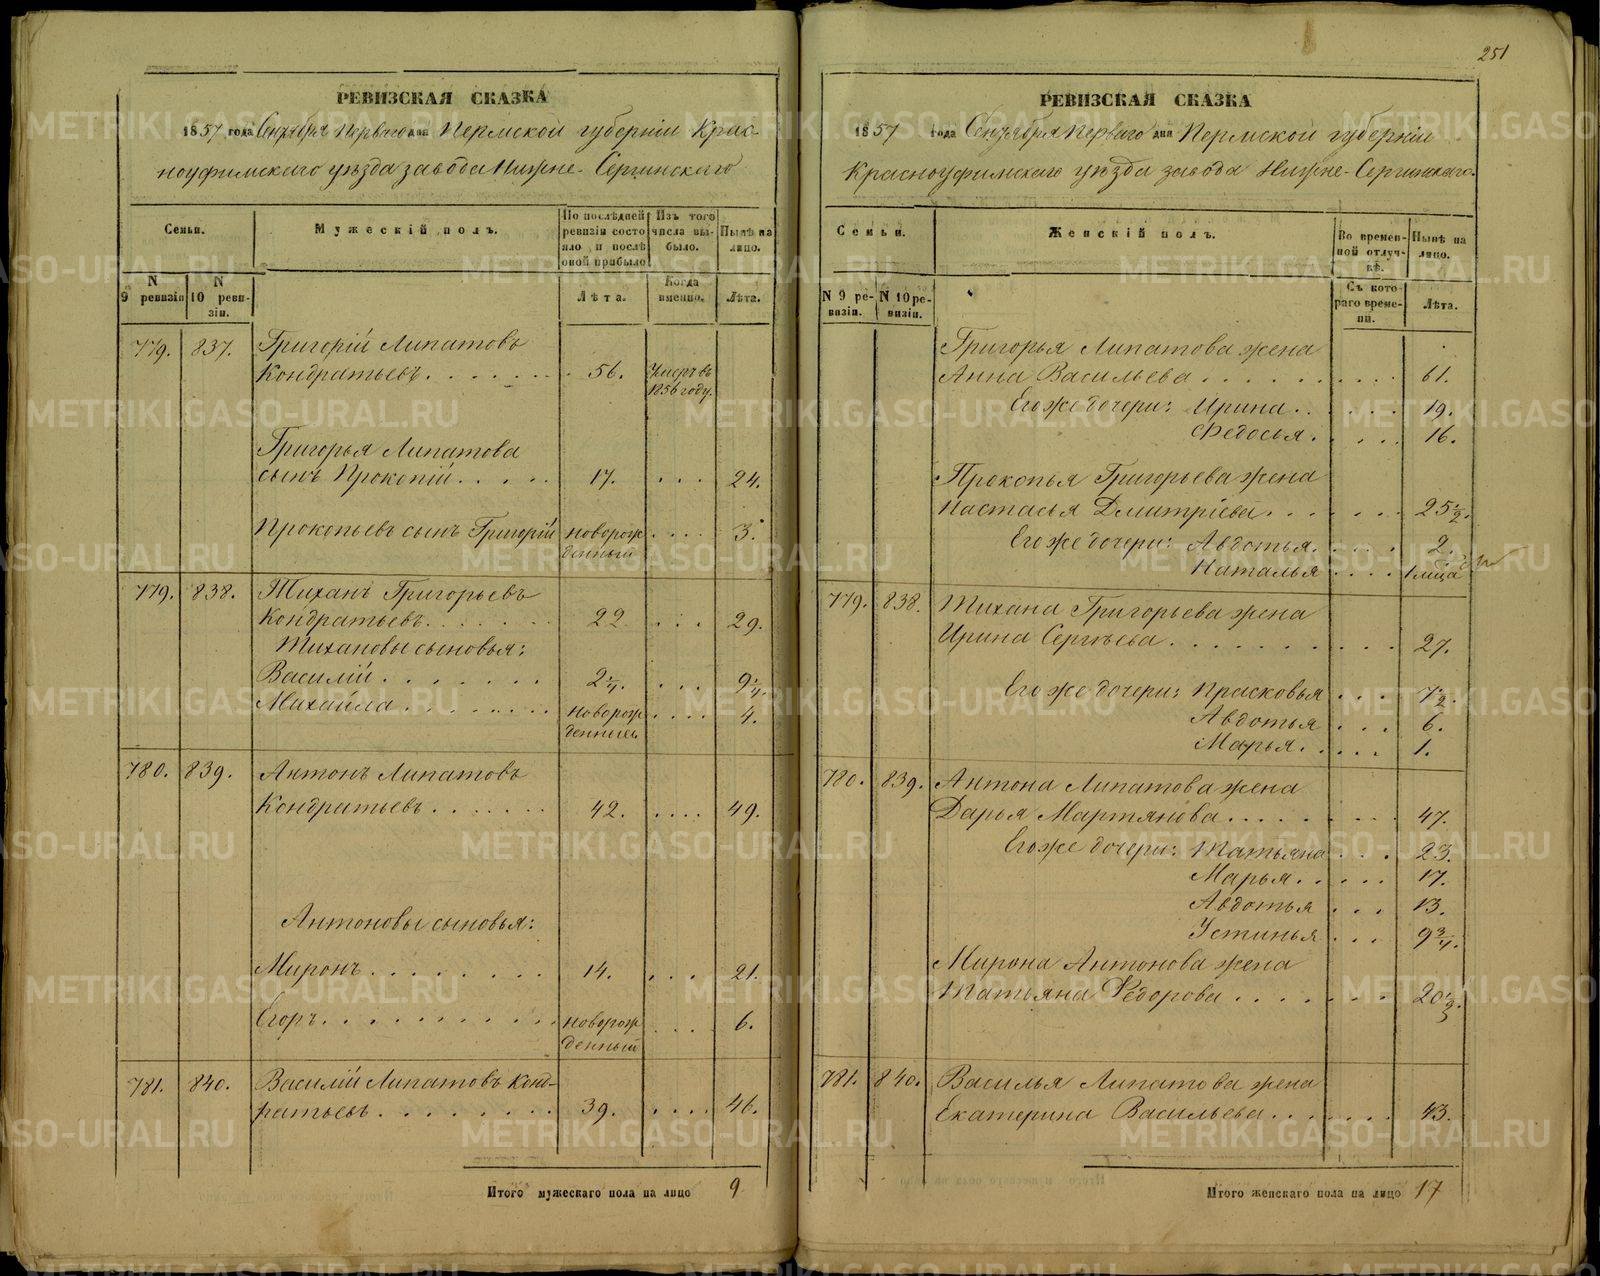 251
РЕВИЗСКАЯ СКАЗКА
1857 года Сентября Перваго дня Пермской губерніи Крас-
ноуфимскаго уѣзда завода Нижне-Сергинскаго
Семьи.
Мужескій полъ.
По послѣдней ревизіи состояло и послѣ оной прибыло
Изъ того числа выбыло.
Нынѣ на лицо.
N 9 ревизіи
N 10 ревизіи.
Лѣта.
Когда именно.
Лѣта.
779. 837. Григорій Липатовъ
Кондратьевъ . . . . . . . 56. Умеръ въ 1856 году.
Григорья Липатова
сынъ Прокопій . . . . . 17. . . . 24.
Прокопьевъ сынъ Григорій новорож . . . . 3.
денный
779. 838. Тиханъ Григорьевъ
Кондратьевъ . . . . . . . 22 . . . 29.
Тихановы сыновья:
Василій . . . . . . . 2 1/4. . . . 9 1/4.
Михайла . . . . . . . новорож . . . . 4.
денный
780. 839. Антонъ Липатовъ
Кондратьевъ . . . . . . 42. . . . . 49.
Антоновы сыновья:
Миронъ . . . . . . . . 14. . . . 21.
Егоръ . . . . . . . . . . новорож . . . . 6.
денный
781. 840. Василій Липатовъ Конд-
ратьевъ . . . . . . . . 39. . . . . 46.
Итого мужескаго пола на лицо 9
РЕВИЗСКАЯ СКАЗКА
1857 года Сентября Перваго дня Пермской губерніи
Красноуфимскаго уѣзда завода Нижне-Сергинскаго.
Семьи.
Женскій полъ.
Во временной отлучкѣ.
Нынѣ на лицо.
N 9 ревизіи.
N 10 ревизіи.
Съ котораго времени.
Лѣта.
Григорья Липатова жена
Анна Васильева . . . . . . . . . . 61.
Его же дочери: Ирина . . . . . . 19.
Федосья . . . . . 16.
Прокопья Григорьева жена
Настасья Дмитріева . . . . . . . 25 1/2.
Его же дочери: Авдотья . . . . . 2.
Наталья . . . . 1 мѣца
779. 838. Тихана Григорьева жена
Ирина Сергѣева . . . . . . . . . . 27.
Его же дочери: Прасковья . . . . 7 1/2.
Авдотья . . . 6.
Марья . . . . . 1.
780. 839. Антона Липатова жена
Дарья Мартянова . . . . . . . . . 47.
Его же дочери: Татьяна . . . 23.
Марья . . . . . 17.
Авдотья . . . 13.
Устинья . . . 9 3/4.
Мирона Антонова жена
Татьяна Федорова . . . . . . . 20 1/3.
781. 840. Василья Липатова жена
Екатерина Васильева . . . . . . . 43.
Итого женскаго пола на лицо 17
METRIKI.GASO-URAL.RU